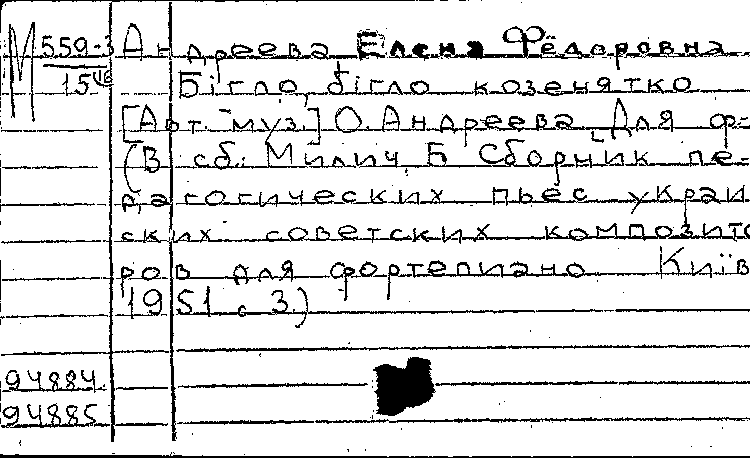 М 559-3 Андреева Елена Фёдоровна
15 Бігло, бігло козенятко
[Авт. муз.] О. Андреева Для ф-
(В сб.: Милич, Б Сборник пе-
дагогических пьес украин
ских советских композито
ров для фортепиано Київ
1951 с 3.)
94884.
94885